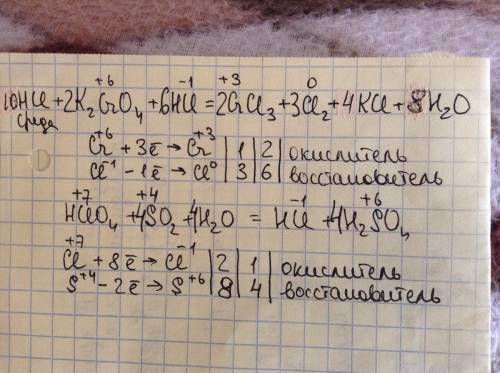 10HCl + 2K₂CrO₄ + 6HCl = 2CrCl₃ + 3Cl₂ + 4KCl + 8H₂O
+6 -1 +3 0
среда
Cr⁺⁶ + 3ē → Cr⁺³ | 1 | 2 | окислитель
Cl⁻¹ - 1ē → Cl⁰ | 3 | 6 | восстановитель
+7 +4 -1 +6
HClO₄ + 4SO₂ + 4H₂O = HCl + 4H₂SO₄
Cl⁺⁷ + 8ē → Cl⁻¹ | 2 | 1 | окислитель
S⁺⁴ - 2ē → S⁺⁶ | 8 | 4 | восстановитель